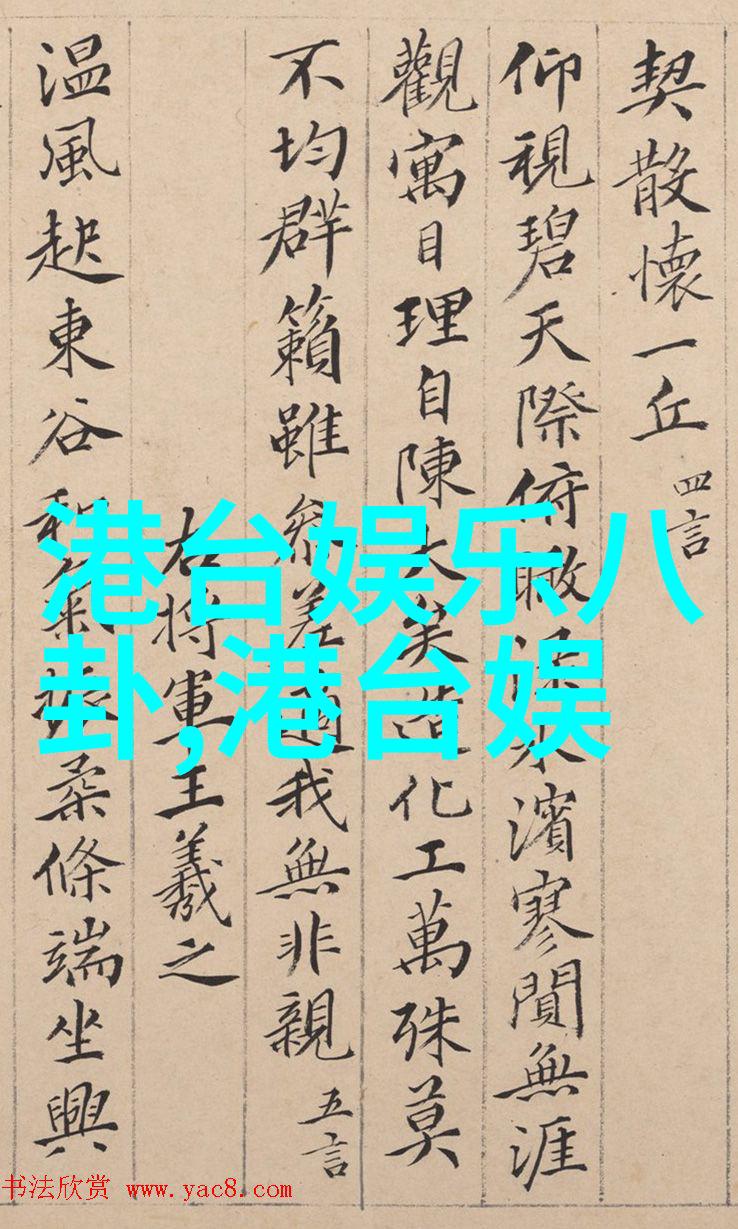 契散懷一丘 四言
仰視碧天際俯瞰水濱寥閴無涯
觀寓目理自陳大矣造化工萬殊莫
不均群籟雖參差適我無非親 五言
右將軍王羲之
温風起東谷和氣振柔條端坐興
港台娱乐八
卦,港台娱
书法欣赏 www.yac8.com